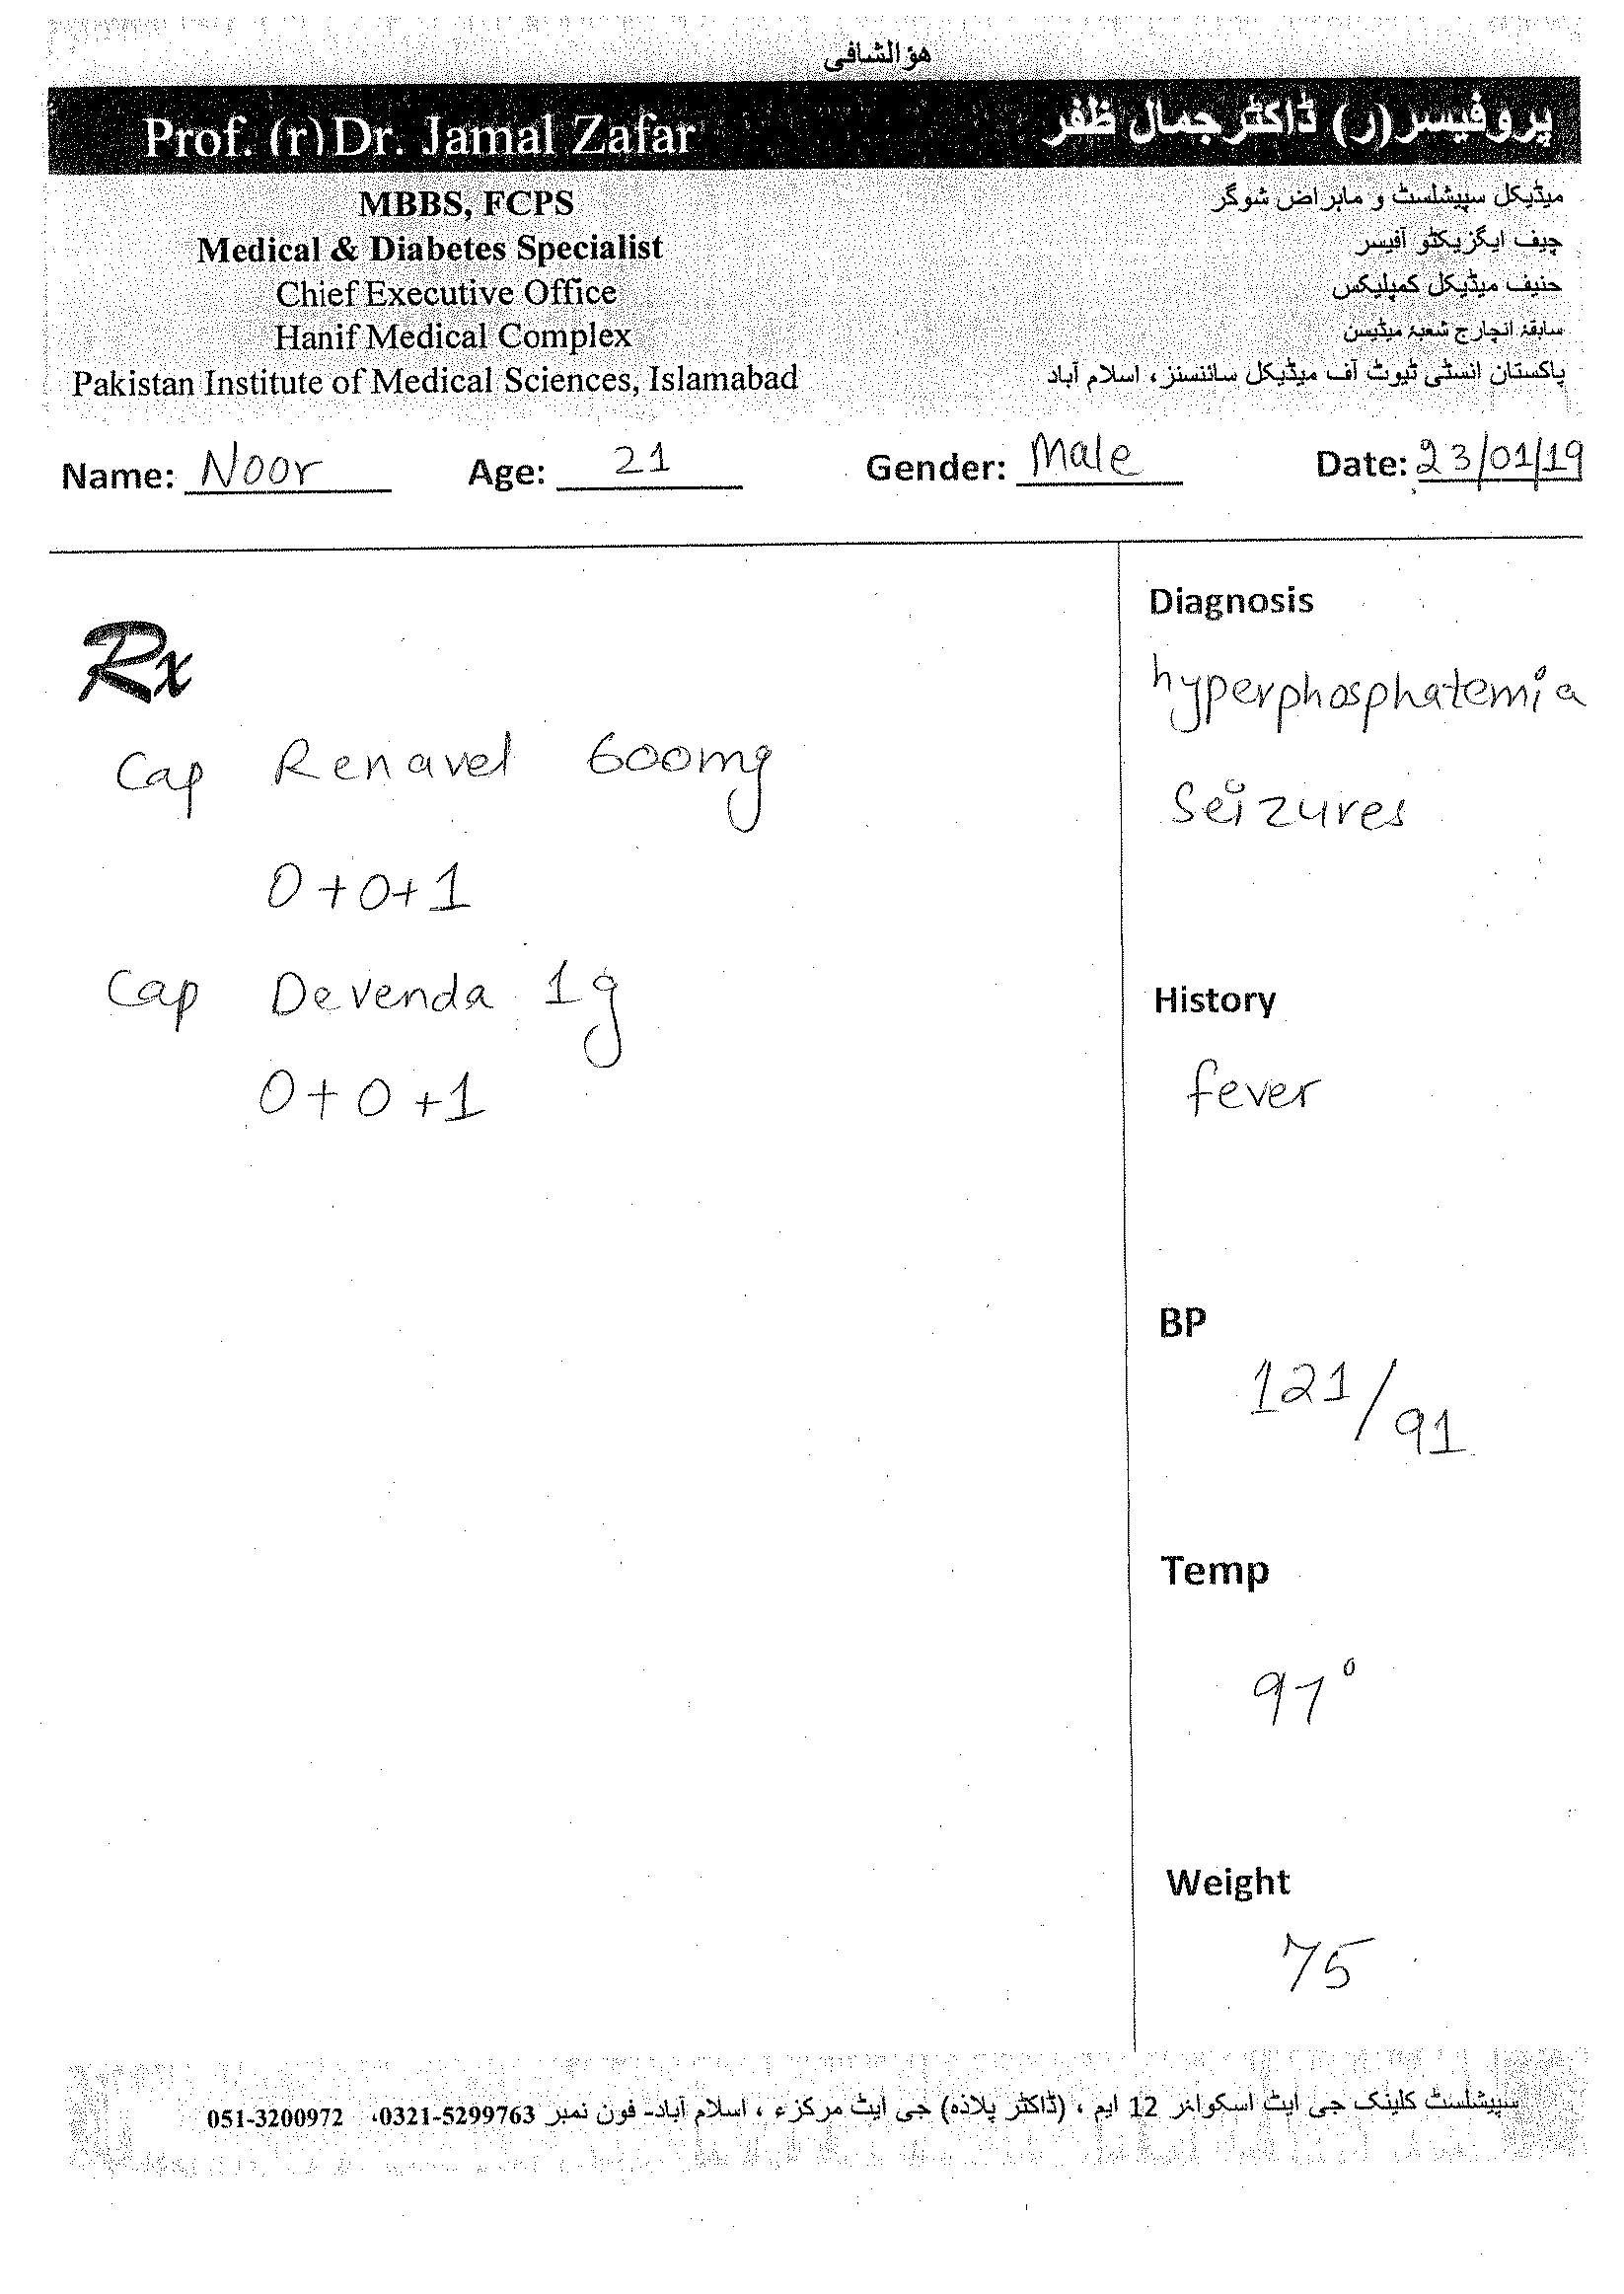 هو الشافی
Prof. (r) Dr. Jamal Zafar
پروفیسر (ر) ڈاکٹر جمال ظفر
MBBS, FCPS
Medical & Diabetes Specialist
Chief Executive Office
Hanif Medical Complex
Pakistan Institute of Medical Sciences, Islamabad
میڈیکل سپیشلسٹ و ماہر اض شوگر
چیف ایگزیکٹو آفیسر
حنیف میڈیکل کمپلیکس
سابقہ انچارج شعبہ میڈیسن
پاکستان انسٹی ٹیوٹ آف میڈیکل سائنسنز، اسلام آباد
Name: Noor Age: 21 Gender: Male Date: 23/01/19
Rx
Cap Renavel 600mg
0+0+1
Cap Devenda 1g
0+0+1
Diagnosis
hyperphosphatemia
Seizures
History
fever
BP
121/91
Temp
97°
Weight
75
سپیشلسٹ کلینک جی ایٹ اسکوائر 12 ایم ، (ڈاکٹر پلازہ) جی ایٹ مرکزء ، اسلام آباد- فون نمبر 0321-5299763، 051-3200972